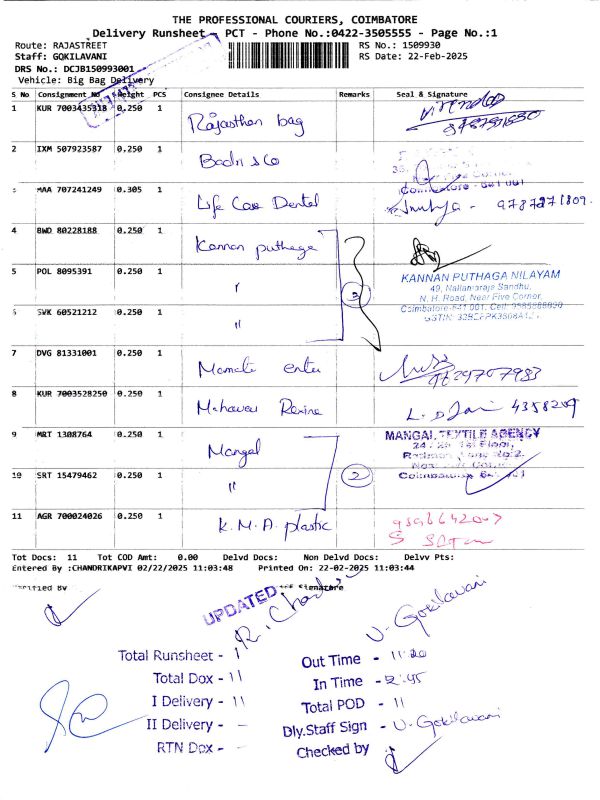 THE PROFESSIONAL COURIERS, COIMBATORE
Delivery Runsheet - PCT - Phone No.:0422-3505555 - Page No.:1
Route: RAJASTREET RS No.: 1509930
Staff: GOKILAVANI RS Date: 22-Feb-2025
DRS No.: DCJB150993001
Vehicle: Big Bag Delivery
S No Consignment No Weight PCS Consignee Details Remarks Seal & Signature
1 KUR 7003435318 0.250 1 Rajasthan bag
2 IXM 507923587 0.250 1 Badri & Co
MAA 707241249 0.305 1 Life Care Dental 9787271809
4 BWD 80228188 0.250 1 Kannan puthaga
5 POL 8095391 0.250 1 "
SVK 60521212 0.250 1 "
3
KANNAN PUTHAGA NILAYAM
49, Nallamaraja Sandhu,
N. H. Road, Near Five Corner,
Coimbatore-641 001.
7 DVG 81331001 0.250 1 Mamata enter
8 KUR 7003528250 0.250 1 4358209
9 MRT 1308764 0.250 1 Mangal
MANGAL TEXTILE AGENCY
10 SRT 15479462 0.250 1 " 2
11 AGR 700024026 0.250 1 K.M.A. plastic
Tot Docs: 11 Tot COD Amt: 0.00 Delvd Docs: Non Delvd Docs: Delvv Pts:
Entered By :CHANDRIKAPVI 02/22/2025 11:03:48 Printed On: 22-02-2025 11:03:44
Verified By Signature
UPDATED
V. Gokilavani
Total Runsheet - 1
Total Dox - 11
I Delivery - 11
II Delivery - -
RTN Dox - -
Out Time - 11:20
In Time -
Total POD - 11
Dly.Staff Sign - V. Gokilavani
Checked by